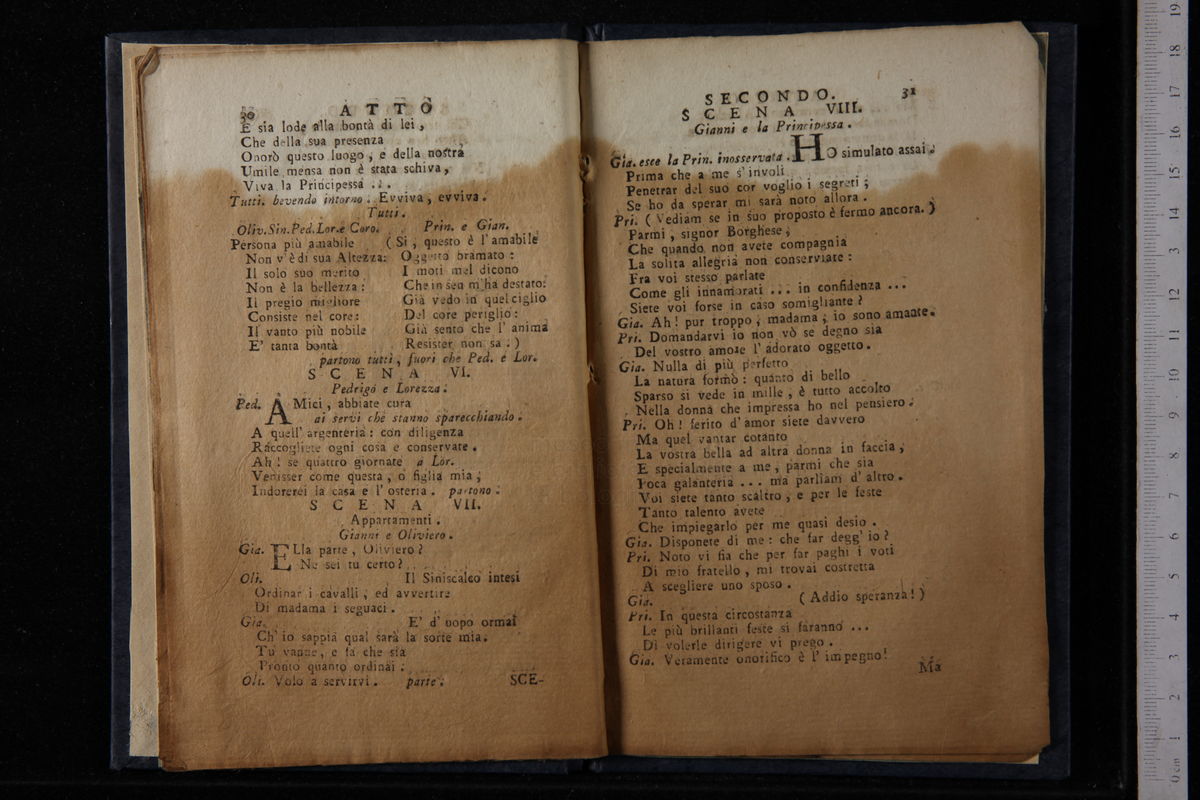 30 ATTO
E sia lode alla bontà di lei,
Che della sua presenza
Onorò questo luogo, e della nostra
Umile mensa non è stata schiva,
Viva la Principessa ...
Tutti. bevendo intorno. Evviva, evviva.
Tutti.
Oliv.Sin.Ped.Lor.e Coro. Prin. e Gian.
Persona più amabile (Si, questo è l'amabile
Non v'è di sua Altezza: Oggetto bramato:
Il solo suo merito I moti mel dicono
Non è la bellezza: Che in sen m'ha destato:
Il pregio migliore Già vedo in quel ciglio
Consiste nel core: Del core periglio:
Il vanto più nobile Già sento che l'anima
E' tanta bontà Resister non sa.)
partono tutti, fuori che Ped. e Lor.
SCENA VI.
Pedrigo e Lorezza.
Ped. AMici, abbiate cura
ai servi che stanno sparecchiando.
A quell'argenteria: con diligenza
Raccogliete ogni cosa e conservate.
Ah! se quattro giornate a Lor.
Venisser come questa, o figlia mia,
Indorerei la casa e l'osteria. partono.
SCENA VII.
Appartamenti.
Gianni e Oliviero.
Gia. ELla parte, Oliviero?
Ne sei tu certo?
Oli. Il Siniscalco intesi
Ordinar i cavalli, ed avvertire
Di madama i seguaci.
Gia. E' d'uopo ormai
Ch'io sappia qual sarà la sorte mia.
Tu vanne, e fa che sia
Pronto quanto ordinai.
Oli. Volo a servirvi. parte.
SCE-
SECONDO. 31
SCENA VIII.
Gianni e la Principessa.
Gia. esce la Prin. inosservata. HO simulato assai.
Prima che a me s'involi
Penetrar del suo cor voglio i segreti;
Se ho da sperar mi sarà noto allora.
Pri. (Vediam se in suo proposto è fermo ancora.)
Parmi, signor Borghese,
Che quando non avete compagnia
La solita allegria non conserviate:
Fra voi stesso parlate
Come gli innamorati ... in confidenza ...
Siete voi forse in caso somigliante?
Gia. Ah! pur troppo, madama, io sono amante.
Pri. Domandarvi io non vò se degno sia
Del vostro amore l'adorato oggetto.
Gia. Nulla di più perfetto
La natura formò: quanto di bello
Sparso si vede in mille, è tutto accolto
Nella donna che impressa ho nel pensiero.
Pri. Oh! ferito d'amor siete davvero
Ma quel vantar cotanto
La vostra bella ad altra donna in faccia,
E specialmente a me, parmi che sia
Poca galanteria ... ma parliam d'altro.
Voi siete tanto scaltro, e per le feste
Tanto talento avete
Che impiegarlo per me quasi desio.
Gia. Disponete di me: che far degg'io?
Pri. Noto vi fia che per far paghi i voti
Di mio fratello, mi trovai costretta
A scegliere uno sposo.
Gia. (Addio speranza!)
Pri. In questa circostanza
Le più brillanti feste si faranno ...
Di volerle dirigere vi prego.
Gia. Veramente onorifico è l'impegno!
Ma
0 cm 1 2 3 4 5 6 7 8 9 10 11 12 13 14 15 16 17 18 19